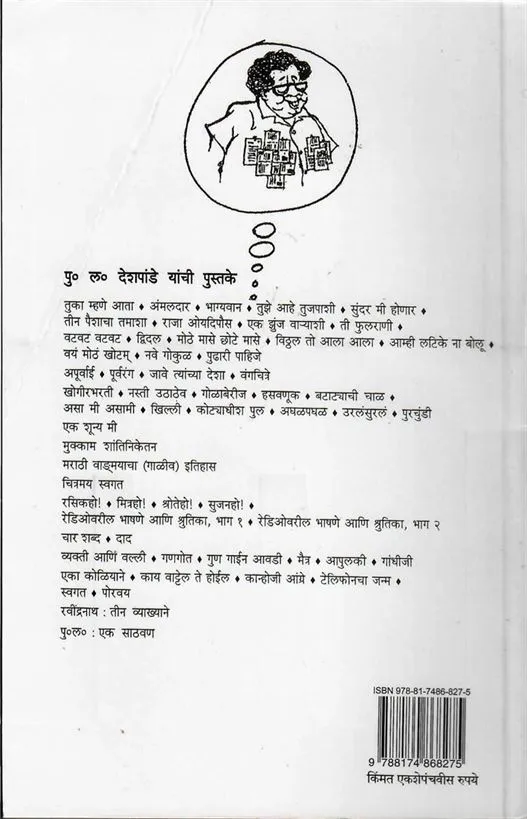 पु० ल० देशपांडे यांची पुस्तके
तुका म्हणे आता ♦ अंमलदार ♦ भाग्यवान ♦ तुझे आहे तुजपाशी ♦ सुंदर मी होणार ♦
तीन पैशाचा तमाशा ♦ राजा ओयदिपौस ♦ एक झुंज वाऱ्याशी ♦ ती फुलराणी ♦
वटवट वटवट ♦ द्विदल ♦ मोठे मासे छोटे मासे ♦ विठ्ठल तो आला आला ♦ आम्ही लटिके ना बोलू ♦
वयं मोठं खोटम् ♦ नवे गोकुळ ♦ पुढारी पाहिजे
अपूर्वाई ♦ पूर्वरंग ♦ जावे त्यांच्या देशा ♦ वंगचित्रे
खोगीरभरती ♦ नस्ती उठाठेव ♦ गोळाबेरीज ♦ हसवणूक ♦ बटाट्याची चाळ ♦
असा मी असामी ♦ खिल्ली ♦ कोट्याधीश पुल ♦ अघळपघळ ♦ उरलंसुरलं ♦ पुरचुंडी
एक शून्य मी
मुक्काम शांतिनिकेतन
मराठी वाङ्मयाचा (गाळीव) इतिहास
चित्रमय स्वगत
रसिकहो! ♦ मित्रहो! ♦ श्रोतेहो! ♦ सुजनहो! ♦
रेडिओवरील भाषणे आणि श्रुतिका, भाग १ ♦ रेडिओवरील भाषणे आणि श्रुतिका, भाग २
चार शब्द ♦ दाद
व्यक्ती आणि वल्ली ♦ गणगोत ♦ गुण गाईन आवडी ♦ मैत्र ♦ आपुलकी ♦ गांधीजी
एका कोळियाने ♦ काय वाट्टेल ते होईल ♦ कान्होजी आंग्रे ♦ टेलिफोनचा जन्म ♦
स्वगत ♦ पोरवय
रवींद्रनाथ : तीन व्याख्याने
पु०ल० : एक साठवण
ISBN 978-81-7486-827-5
9 788174 868275
किंमत एकशेपंचवीस रुपये